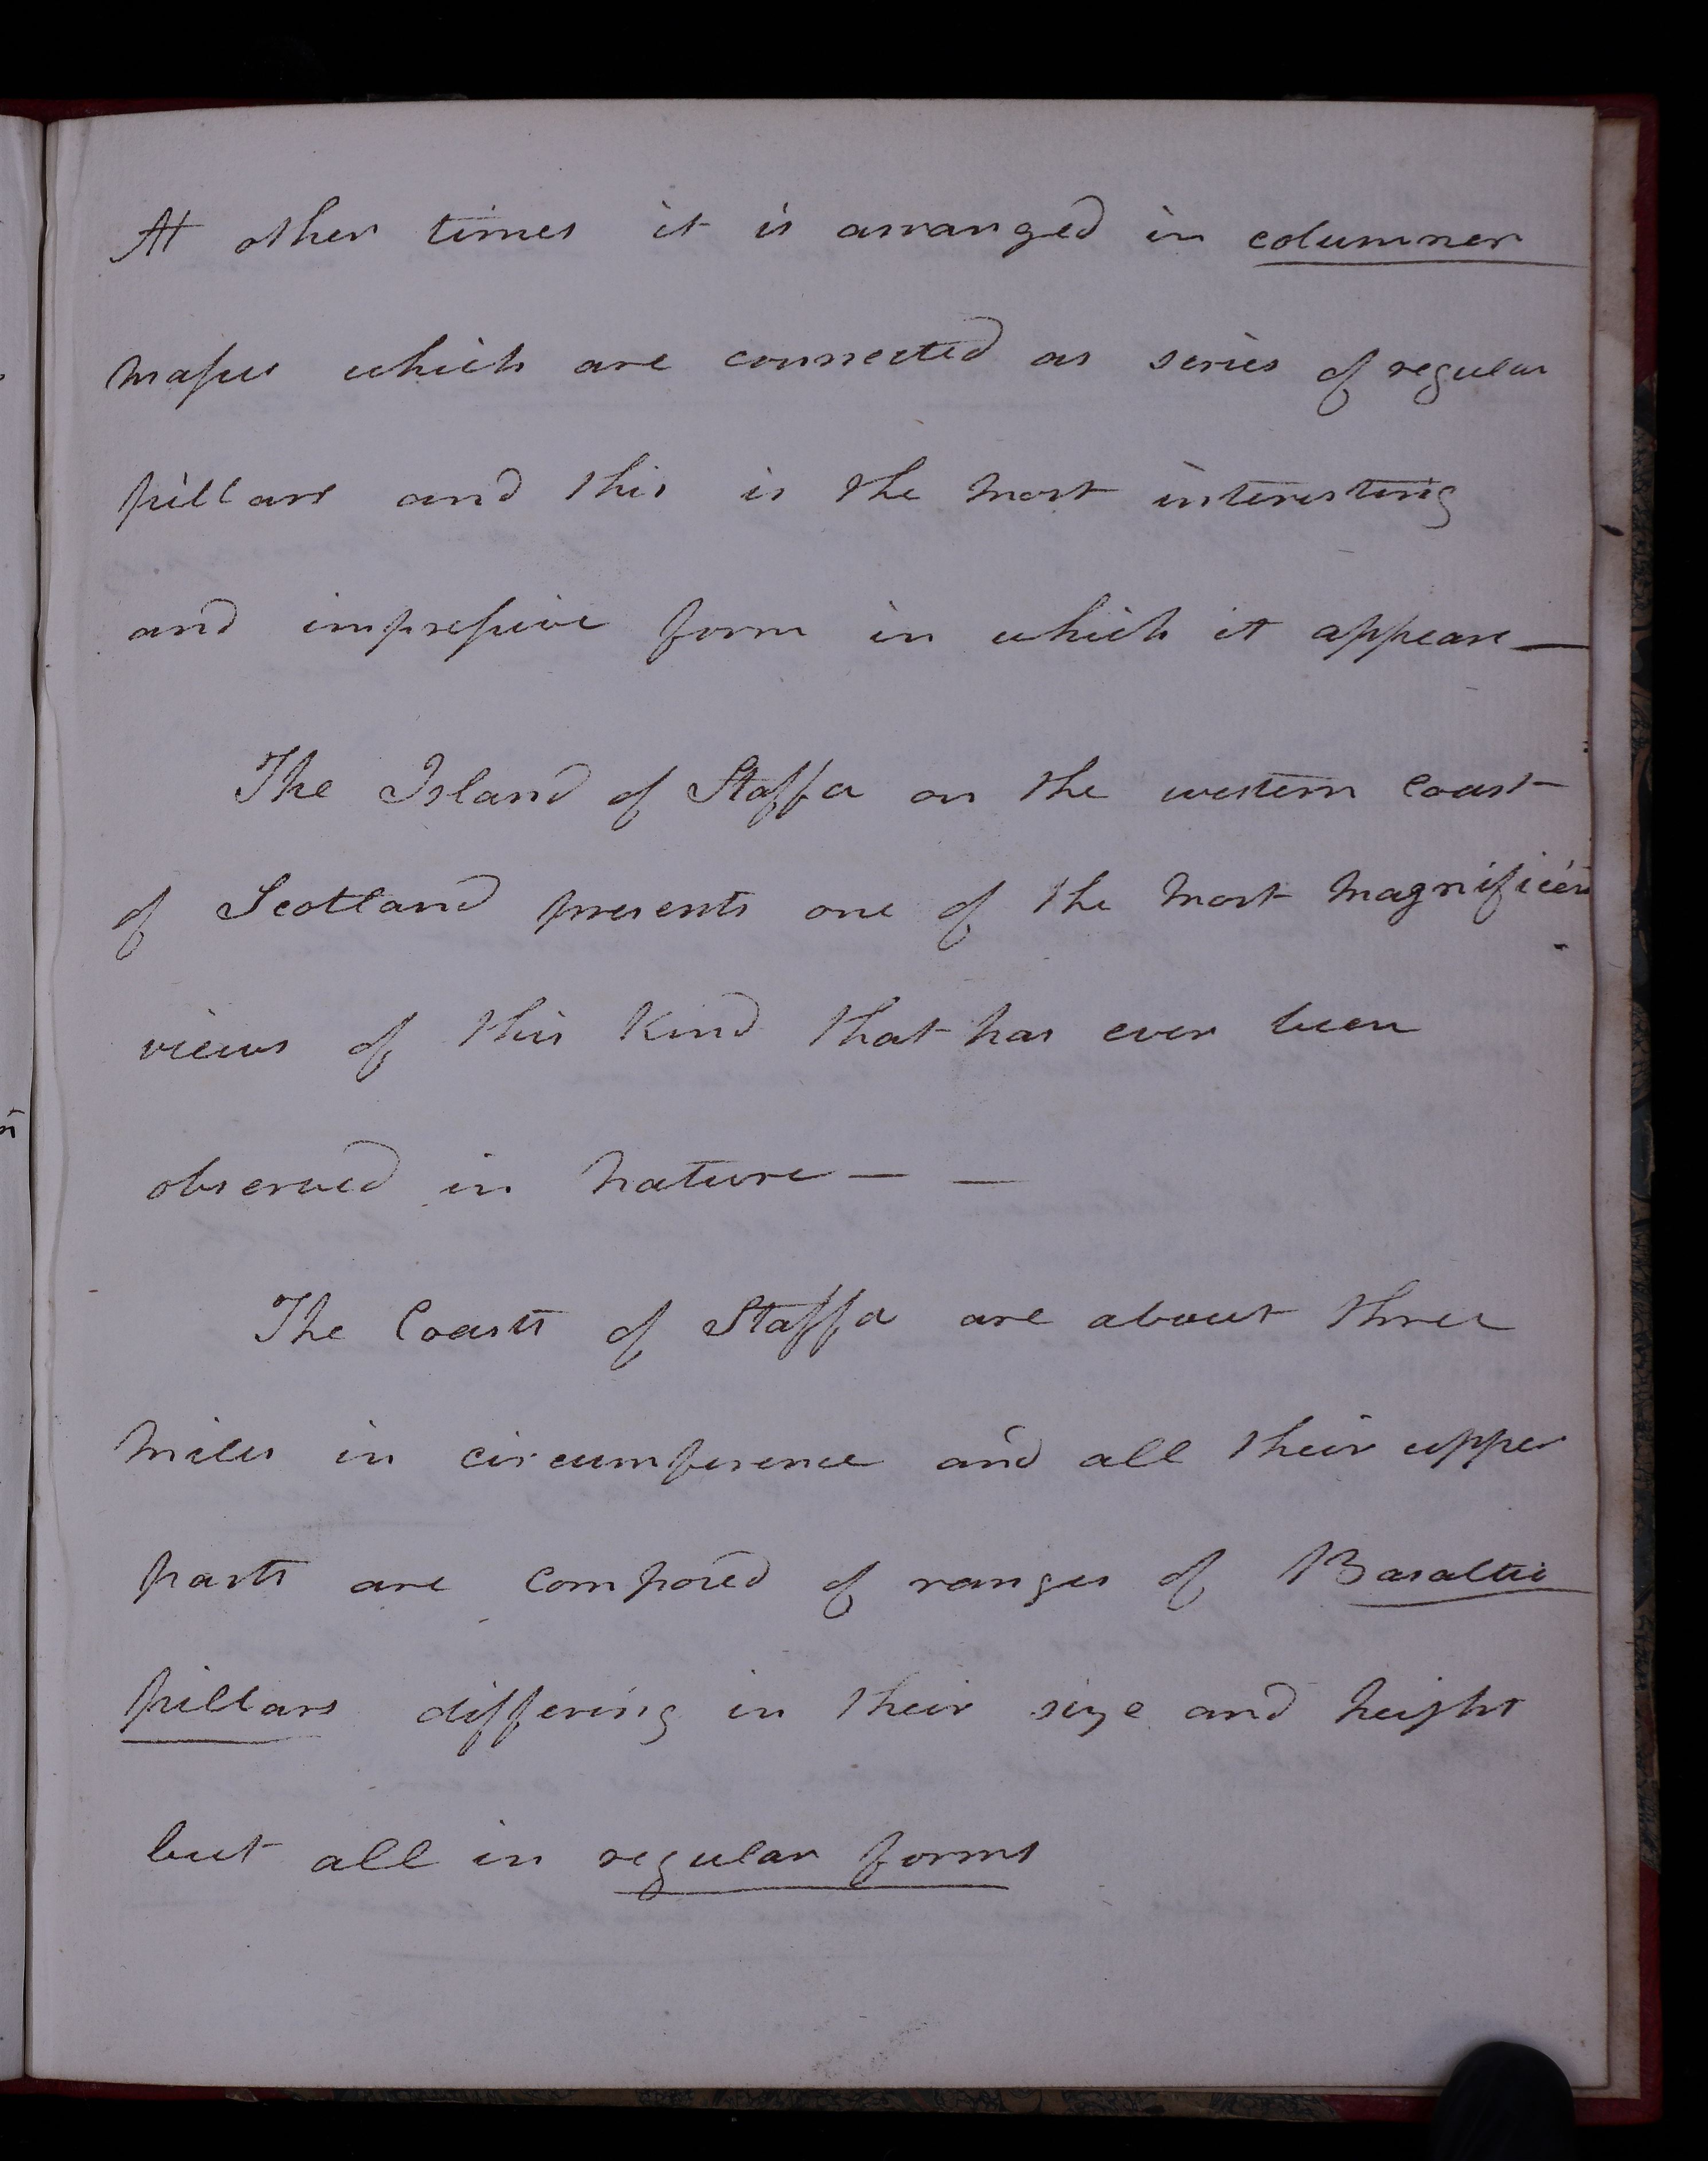 At other times it is arranged in columner
masses which are connected as series of regular
pillars and this is the most interesting
and impressive form in which it appears —
The Island of Staffa on the western coast
of Scotland presents one of the most magnificent
views of this kind that has ever been
observed in nature — —
The Coasts of Staffa are about three
miles in circumference and all their upper
parts are composed of ranges of Basaltic
pillars differing in their size and height
but all in regular forms